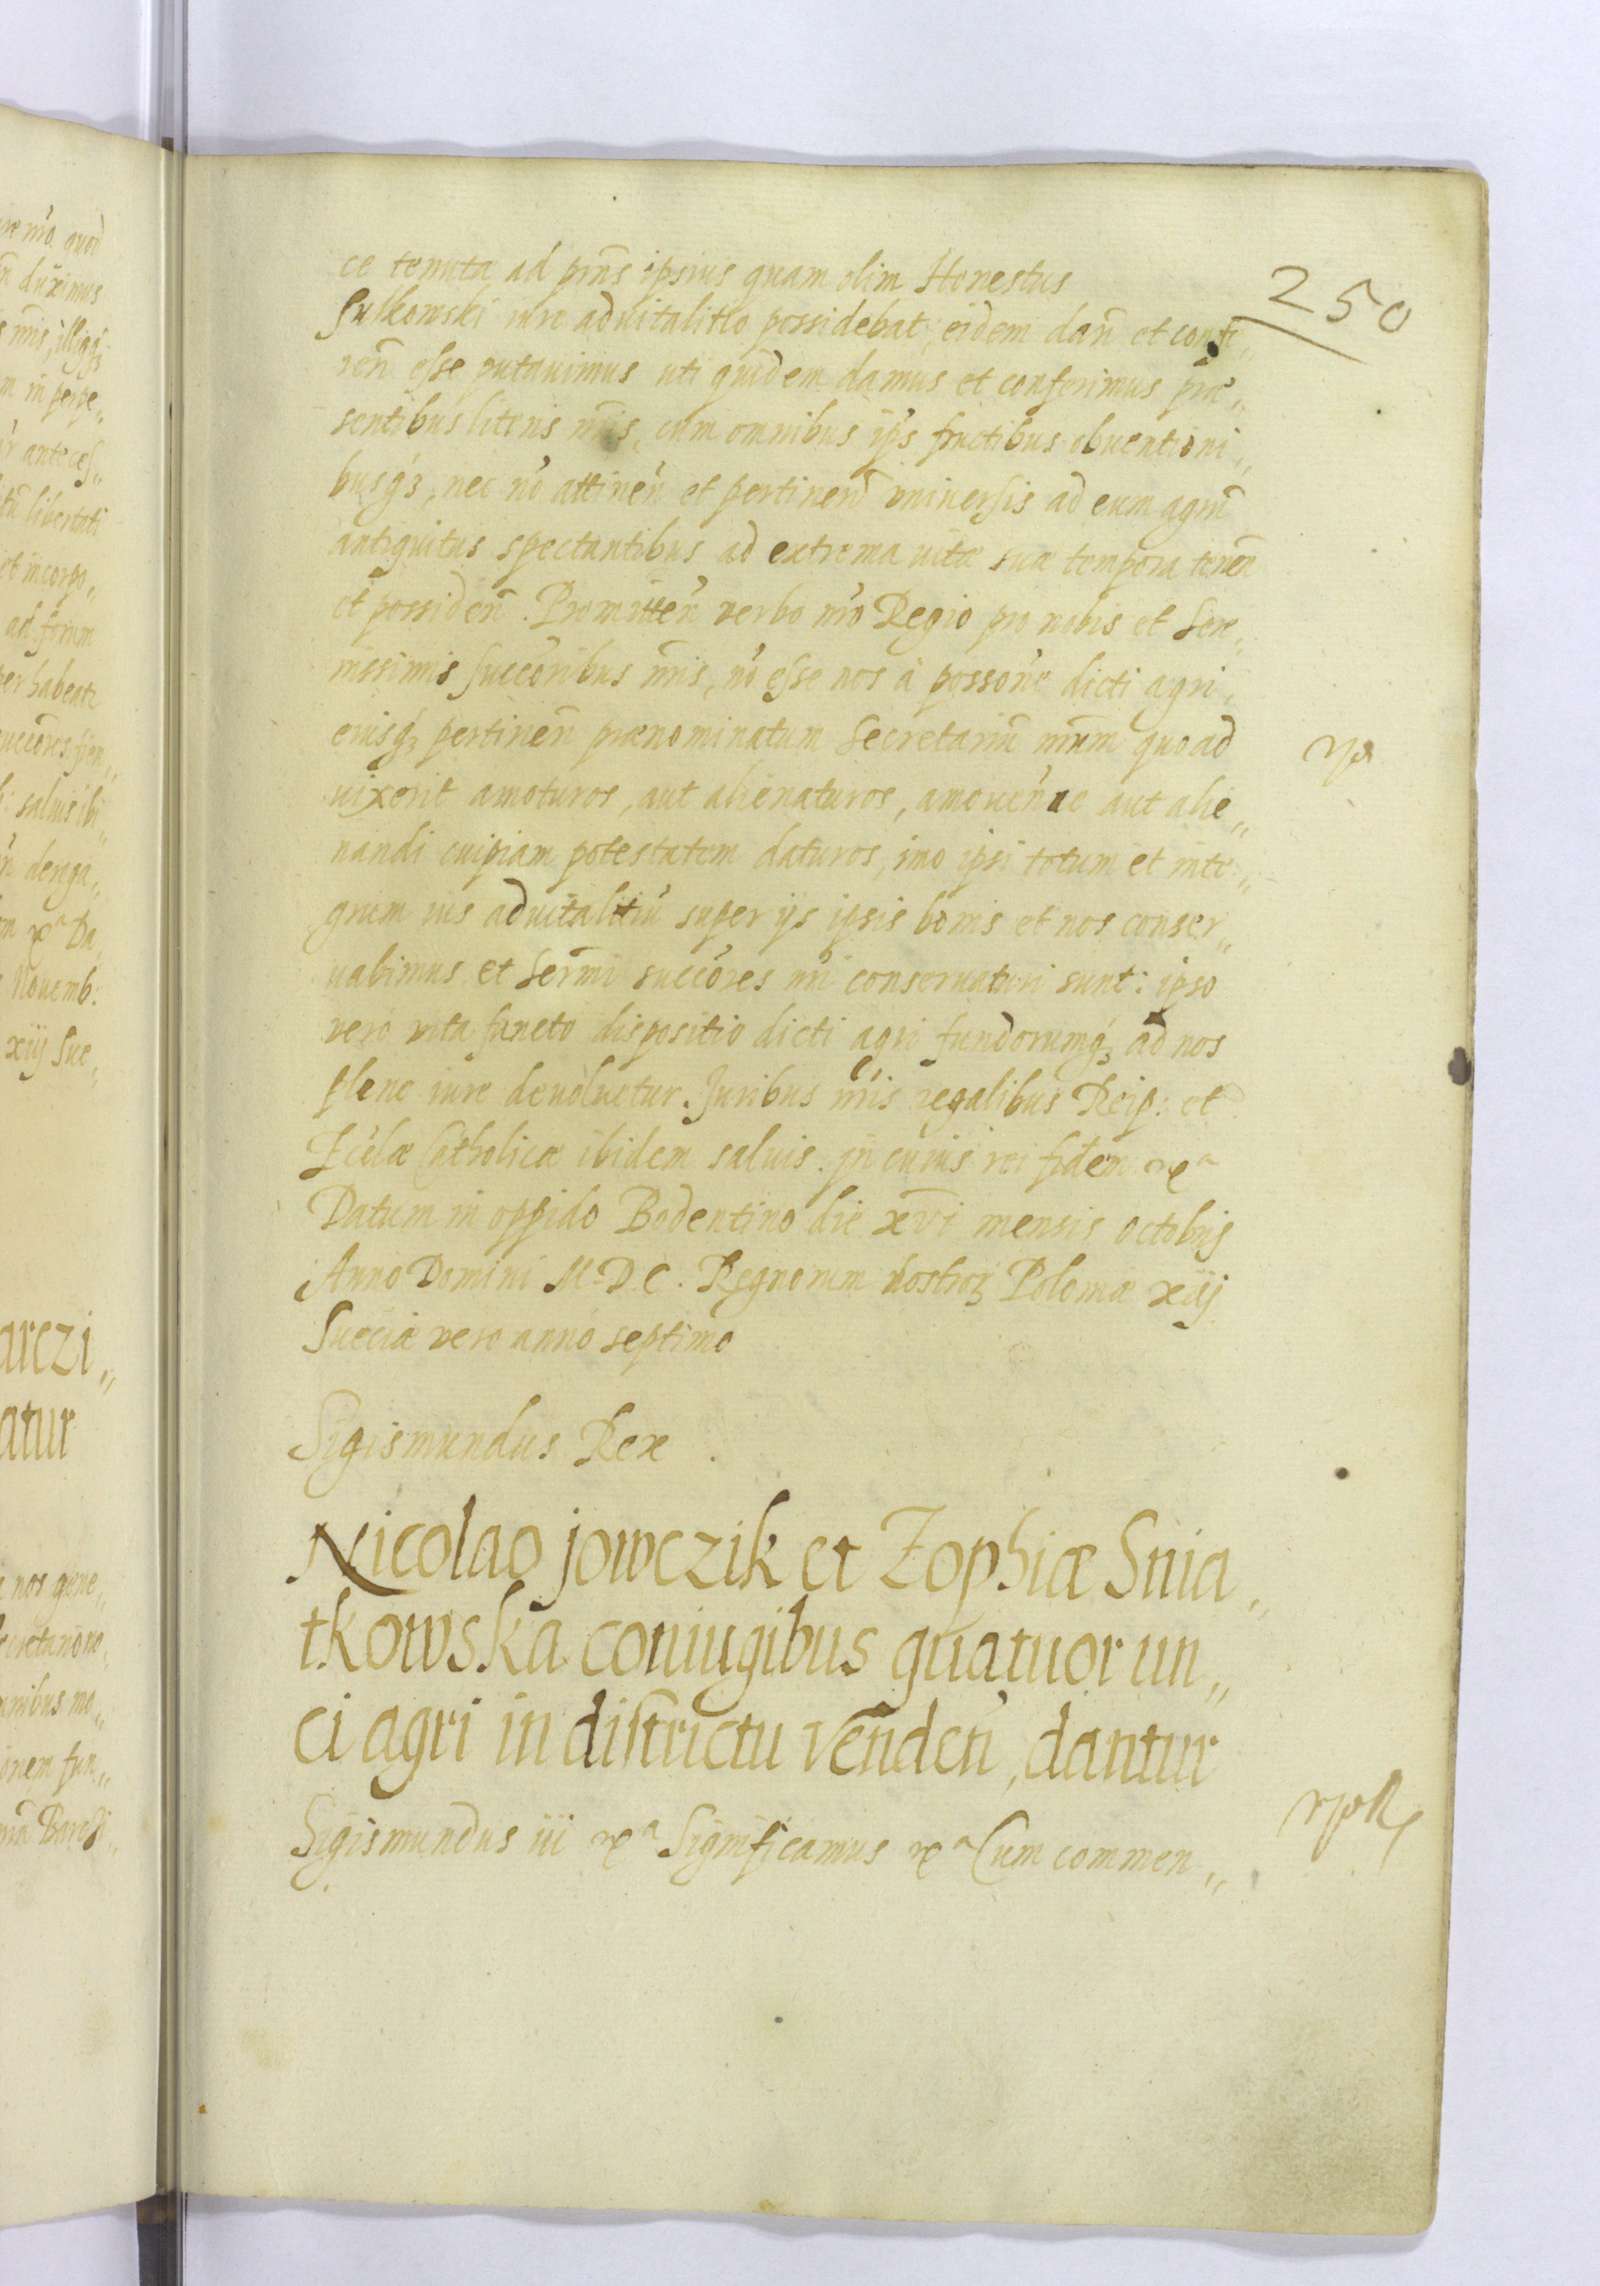 250
ce tenuta ad pñs ipsius quam olim Honestus
Sulkowski iure aduitalitio possidebat, eidem dañ et confe„
reñ esse putauimus uti quidem damus et conferimus præ„
sentibus literis ñris, cum omnibus ijs fructibus obuentioni„
busq3, nec nõ attineñ et pertineñ vniuersis ad eum agrũ
antiquitus spectantibus ad extrema uitæ suæ tempora teneñ
et possideñ. Promitteñ verbo ñro Regio pro nobis et Sere„
nissimis succõribus ñris, nõ esse nos à possõne dicti agri,
eiusq3 pertineñ prænominatum Secretariũ ñrum quoad
uixerit amoturos, aut alienaturos, amoueñ ue aut alie„
nandi cuipiam potestatem daturos, imo ipsi totum et inte„
grum ius aduitalitiũ super ijs ipsis bonis et nos conser„
uabimus et Serm̃i succõres ñri conseruaturi sunt: ipso
vero vita functo dispositio dicti agri fundorumq3 ad nos
pleno iure deuoluetur. Juribus ñris regalibus Reip: et
Ecclæ Catholicæ ibidem saluis. In cuius rei fidem etcª
Datum in oppido Bodentino die xvi mensis octobris
Anno Domini M.D.C. Regnorum nostroꝝ Poloniæ xiij
Sueciæ vero anno septimo
Sigismundus Rex.
Nicolao Jowczik et Zophiæ Snia„
tkowska coniugibus quatuor un„
ci agri in districtu Vendeñ, dantur
Sigismundus iii etcª Significamus etcª Cum commen„